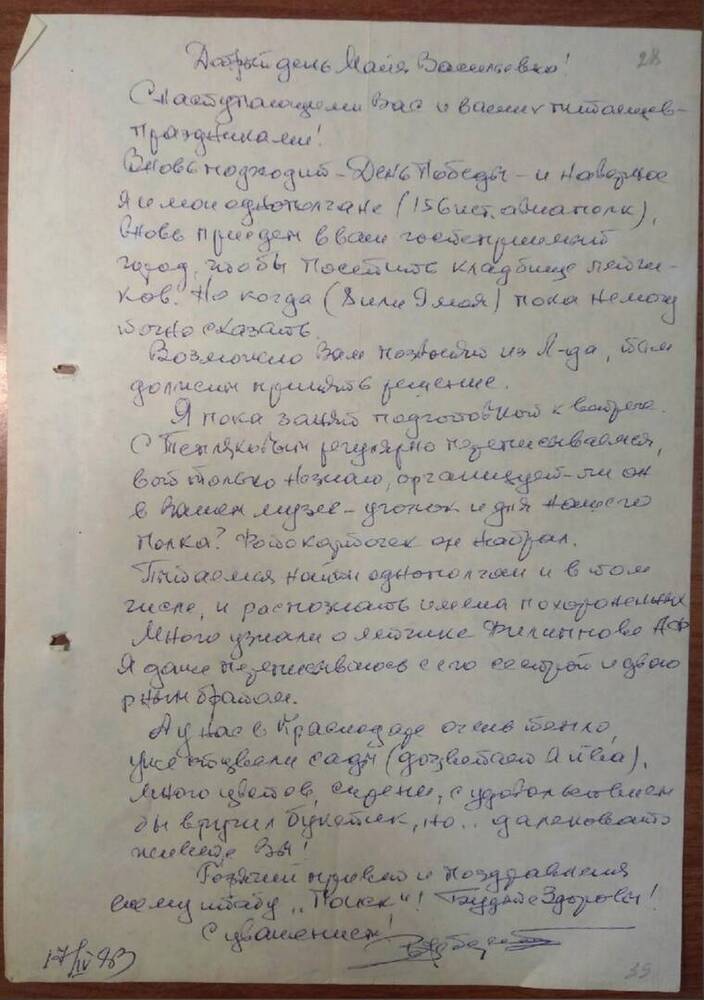 28
Добрый день Майя Васильевна!
С наступающими Вас и ваших питомцев-
праздниками!
Вновь подходит - День Победы - и наверное
я и мои однополчане (156 ист. авиаполк),
вновь приедем в ваш гостеприимный
город, чтобы посетить кладбище летчи-
ков. Но когда (8 или 9 мая) пока не могу
точно сказать.
Возможно Вам позвонят из Л-да, там
должны принять решение.
Я пока занят подготовкой к встрече.
С Тепляковым регулярно переписываемся,
вот только не знаю, организует-ли он
в Вашем музее - уголок и для нашего
полка? Фотокарточек он набрал.
Пытаемся найти однополчан и в том
числе, и распознать имена похороненных
Много узнали о летчике Филиппове АФ
Я даже переписываюсь с его сестрой и двою
рным братом.
А у нас в Краснодаре очень тепло,
уже отцвели сады (дозветает Айва).
много цветов, сирени, с удовольствием
бы вручил букетик, но.. далековато
живете Вы!
Горячий привет и поздравления
всему штабу „Поиск"! Будьте Здоровы!
С уважением!
17/IV 83
39